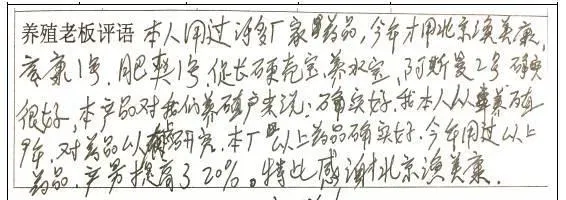 养殖老板评语 本人用过许多厂家药品，今年才用北京渔美康，
底康1号，肥巽1号 促长硬壳宝 养水宝，阿斯曼2号 确实
很好，本产品对我们养殖户来说，确实好，我本人从事养殖
9年，对药品以研究，本厂以上药品确实好，今年用过以上
药品，产男提高了20%。特此感谢北京渔美康．